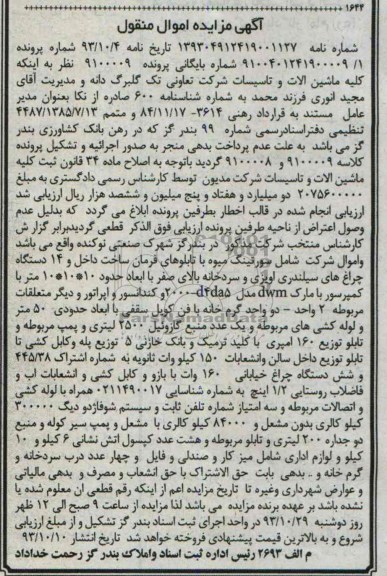 ۱۶۴۴
آگهی مزایده اموال منقول
شماره نامه ۱۳۹۳۰۴۹۱۲۴۱۹۰۰۱۱۲۷ تاریخ نامه ۹۳/۱۰/۴ شماره پرونده
۹۱۰۰۴۰۱۲۴۱۹۰۰۰۰۹/۱ شماره بایگانی پرونده ۹۱۰۰۰۰۹ نظر به اینکه
کلیه ماشین الات و تاسیسات شرکت تعاونی تک گلبرگ دانه و مدیریت آقای
مجید انوری فرزند محمد به شماره شناسنامه ۶۰۰ صادره از نکا بعنوان مدیر
عامل مستند به قرارداد رهنی ۳۶۱۴- ۸۴/۱۱/۱۷ و متمم ۴۴۸۷/۱۳۸۵/۷/۱۳
تنظیمی دفتراسنادرسمی شماره ۹۹ بندر گز که در رهن بانک کشاورزی بندر
گز می باشد به علت عدم پرداخت بدهی منجر به صدور اجرائیه و تشکیل پرونده
کلاسه ۹۱۰۰۰۰۹ و ۹۱۰۰۰۰۸ گردید باتوجه به اصلاح ماده ۳۴ قانون ثبت کلیه
ماشین الات و تاسیسات شرکت مدیون توسط کارشناس رسمی دادگستری به مبلغ
۲۰۷۵۶۰۰۰۰۰ دو میلیارد و هفتاد و پنج میلیون و ششصد هزار ریال ارزیابی شد
ارزیابی انجام شده در قالب اخطار بطرفین پرونده ابلاغ می گردد که بدلیل عدم
وصول اعتراض از ناحیه طرفین پرونده ارزیابی فوق الذکر قطعی گردیدبرابر گزارش
کارشناس منتخب شرکت مذکور در بندرگز شهرک صنعتی نوکنده واقع می باشد
واموال شرکت شامل سورتینگ میوه با تابلوهای فرمان ساخت داخل و ۱۴ دستگاه
چراغ های سیلندری اویزی و سردخانه بالای صفر با ابعاد حدود ۱۰*۱۰*۱۰ متر با
کمپرسور با مارک dwm مدل d۴da۵-۲۰۰۰ و کندانسور و اپراتور و دیگر متعلقات
مربوطه ۲ واحد – دو واحد گرم خانه با فن کویل سقفی با ابعاد حدودی ۵۰ متر
و لوله کشی های مربوطه و یک عدد منبع گازوئیل ۲۵۰۰ لیتری و پمپ مربوطه و
تابلو توزیع ۱۶۰ امپری با کلید ترمیک و بانک خازنی ۵ توزیع پله وکابل کشی تا
تابلو توزیع داخل سالن وانشعابات ۱۵۰ کیلو وات ثانویه به شماره اشتراک ۴۴۵/۳۸
و شش دستگاه چراغ خیابانی ۱۶۰ وات با بازو و کابل کشی و انشعابات اب و
فاضلاب روستایی ۱/۲ اینچ به شماره شناسایی ۰۲۱۱۴۹۰۰۱۷ همراه با لوله کشی
و اتصالات مربوطه و سه امتیاز شماره تلفن ثابت و سیستم شوفاژدو دیگ ۳۰۰۰۰۰
کیلو کالری بدون مشعل و ۸۴۰۰۰ کیلو کالری با مشعل و پمپ سیر کوله و منبع
دو جداره ۲۰۰ لیتری و تابلو مربوطه و هشت عدد کپسول اتش نشانی ۶ کیلو و ۱۰
کیلو و لوازم اداری شامل میز کار و صندلی و فایل و چهار عدد درب سردخانه و
گرم خانه و .. بدهی بابت حق الاشتراک با حق انشعاب و مصرف و بدهی مالیاتی
و عوارض شهرداری وغیره تا تاریخ مزایده اعم از اینکه رقم قطعی ان معلوم شده یا
نشده باشد بر عهده برنده مزایده می باشد لذا مزایده از ساعت ۹ صبح الی ۱۲ ظهر
روز دوشنبه ۹۳/۱۰/۲۹ در واحد اجرای ثبت اسناد بندر گز تشکیل و از مبلغ ارزیابی
شروع و به بالاترین قیمت پیشنهادی فروخته خواهد شد تاریخ انتشار ۹۳/۱۰/۱۰
م الف ۲۶۹۳ رئیس اداره ثبت اسناد واملاک بندر گز رحمت خداداد